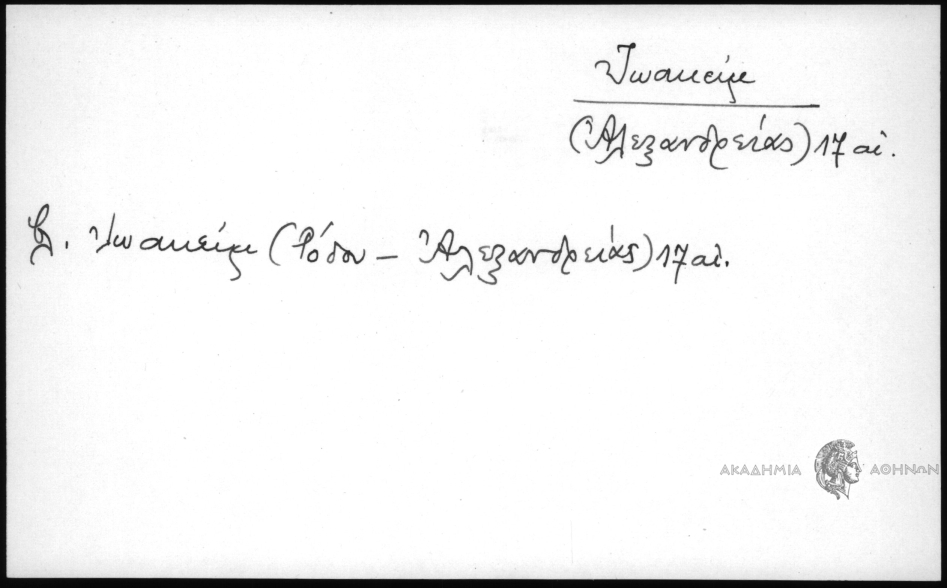 Ἰωακείμ
(Ἀλεξανδρείας) 17 αἰ.
βλ. Ἰωακείμ (Ρόδου – Ἀλεξανδρείας) 17 αἰ.
ΑΚΑΔΗΜΙΑ ΑΘΗΝΩΝ